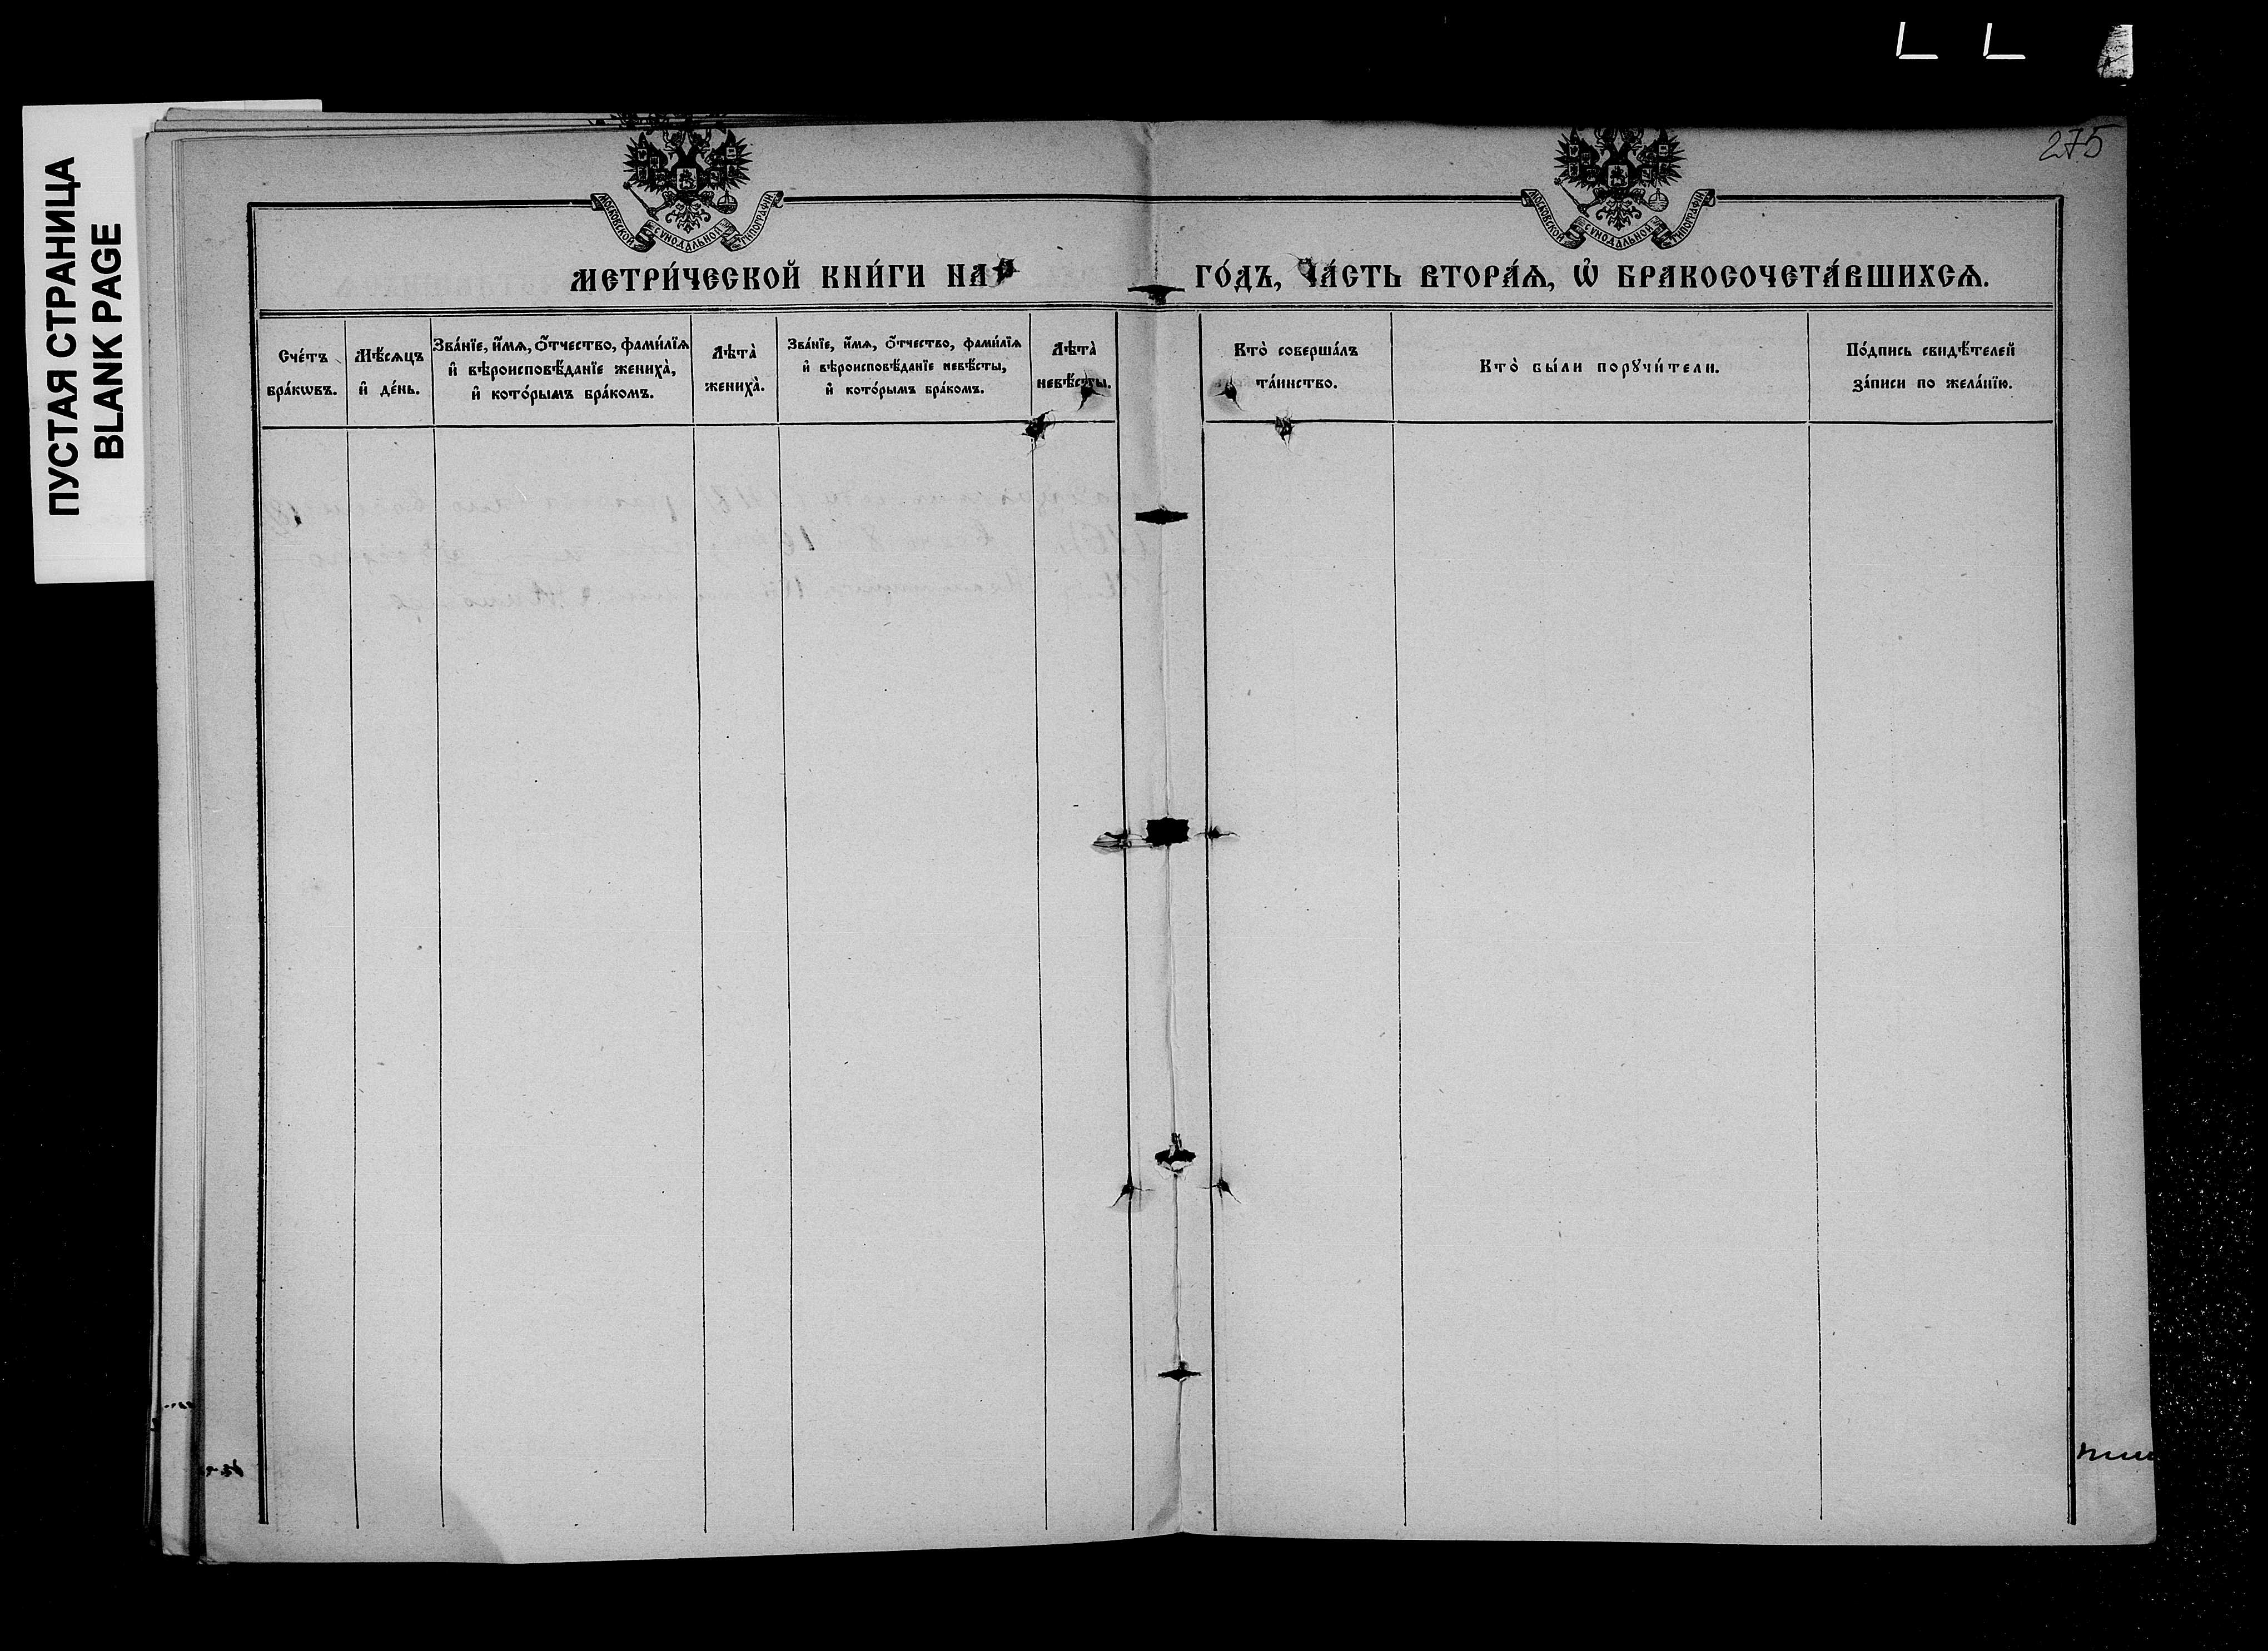 ПУСТАЯ СТРАНИЦА
BLANK PAGE
275
МОСКОВСКОЙ СѴНОДАЛЬНОЙ ТИПОГРАФІИ
МОСКОВСКОЙ СѴНОДАЛЬНОЙ ТИПОГРАФІИ
МЕТРИ́ЧЕСКОЙ КНИ́ГИ НА ГО́ДЪ, ЧА́СТЬ ВТОРА́Ѧ, Ѽ БРАКОСОЧЕТА́ВШИХСѦ.
Сче́тъ
бра́кѡвъ.
Мѣ́сѧцъ
и҆ де́нь.
Зва́нїе, и҆́мѧ, ѻ҆́тчество, фами́лїѧ
и҆ вѣроисповѣ́данїе жениха̀,
и҆ кото́рымъ бра́комъ.
Лѣта̀
жениха̀.
Зва́нїе, и҆́мѧ, ѻ҆́тчество, фами́лїѧ
и҆ вѣроисповѣ́данїе невѣ́сты,
и҆ кото́рымъ бра́комъ.
Лѣта̀
невѣ́сты.
Кто̀ соверша́лъ
та́инство.
Кто̀ бы́ли порꙋчи́тели.
По́дпись свидѣ́телей
за́писи по жела́нїю.